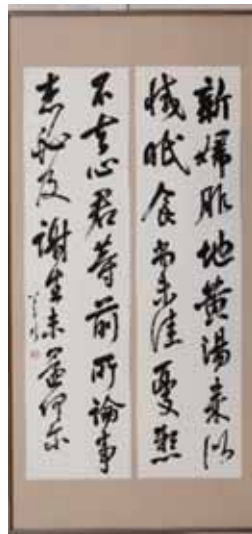 新婦服地黄湯来似
減眠食尚未佳憂懸
不去心君等前所論事
想必及謝生未還何尓